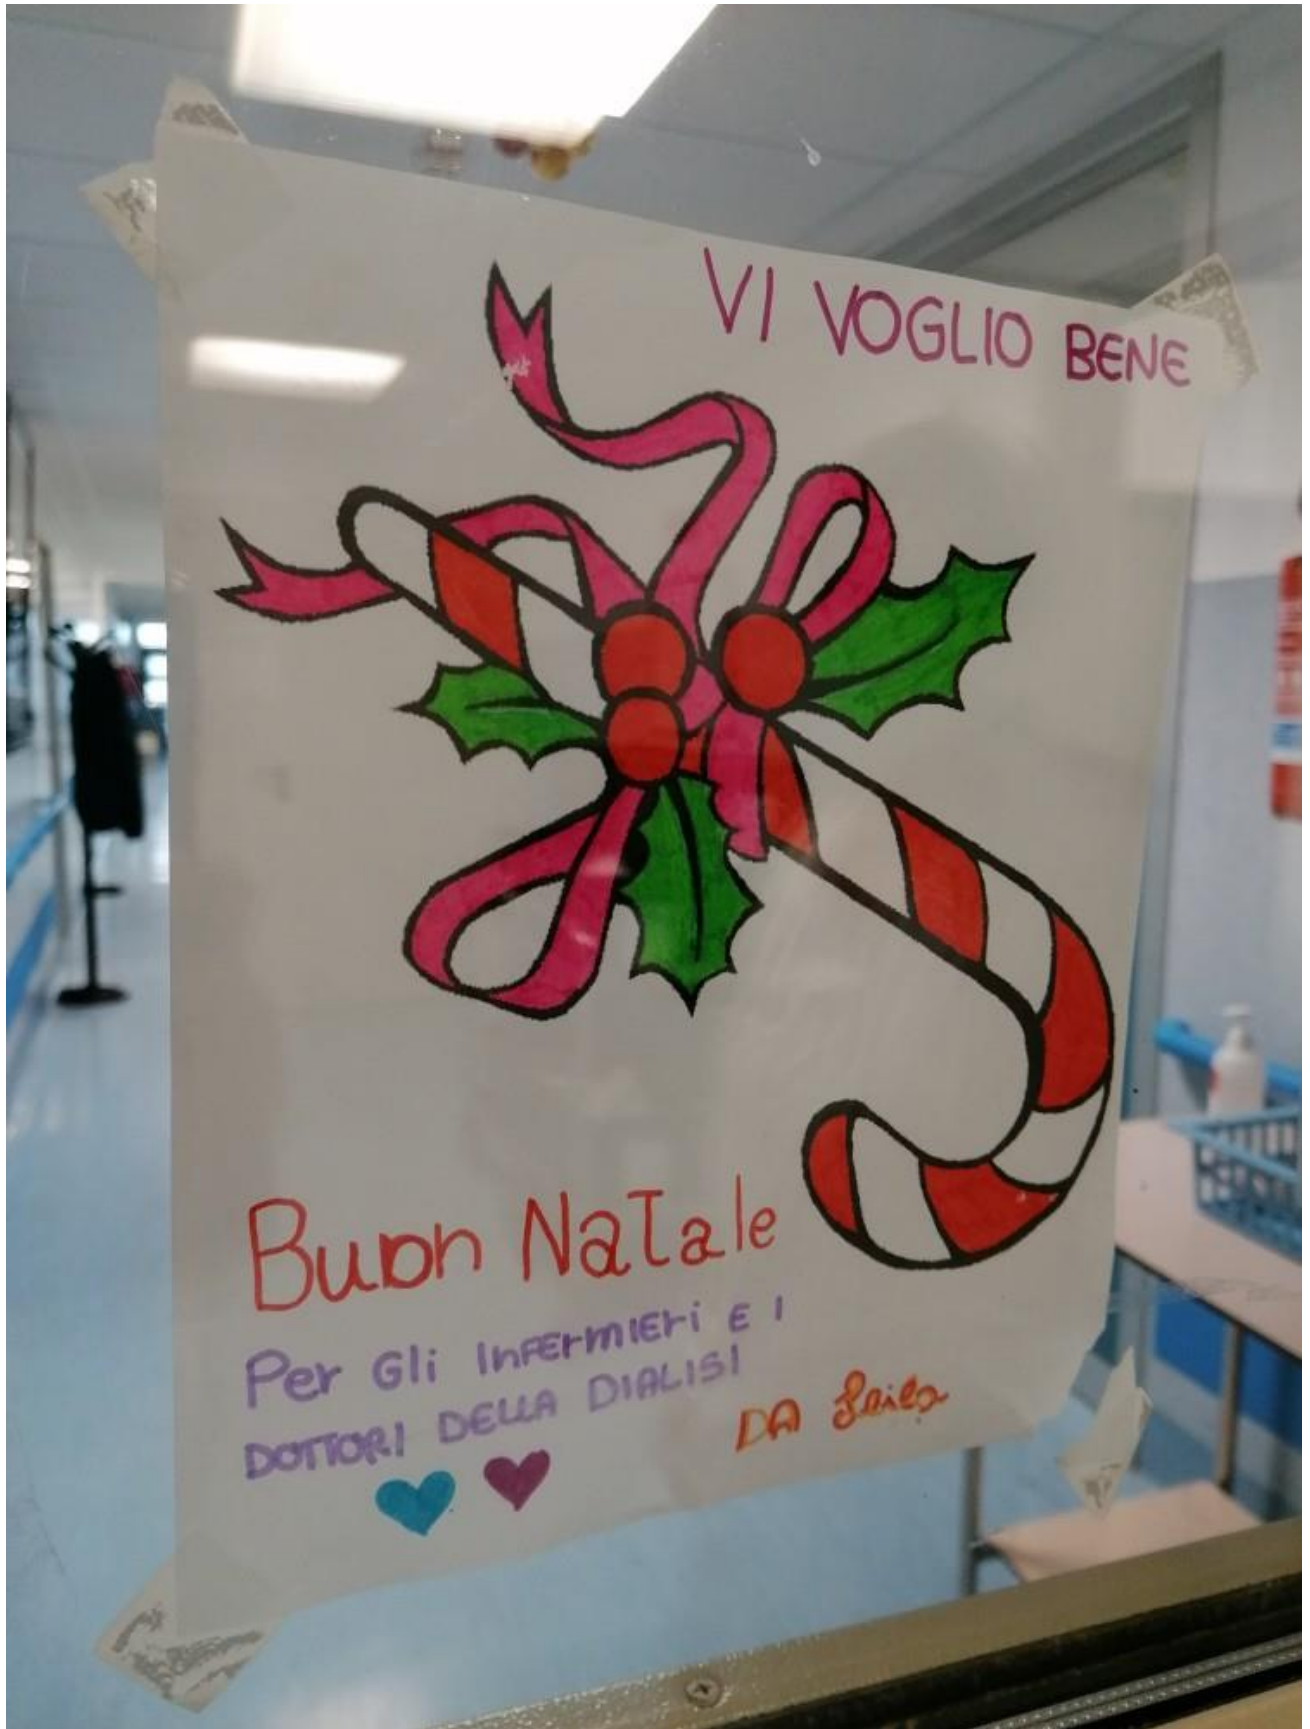 VI VOGLIO BENE
Buon NaTale
Per Gli InFErmIEri E I
DOTTORI DELLA DIALISI
DA Leila